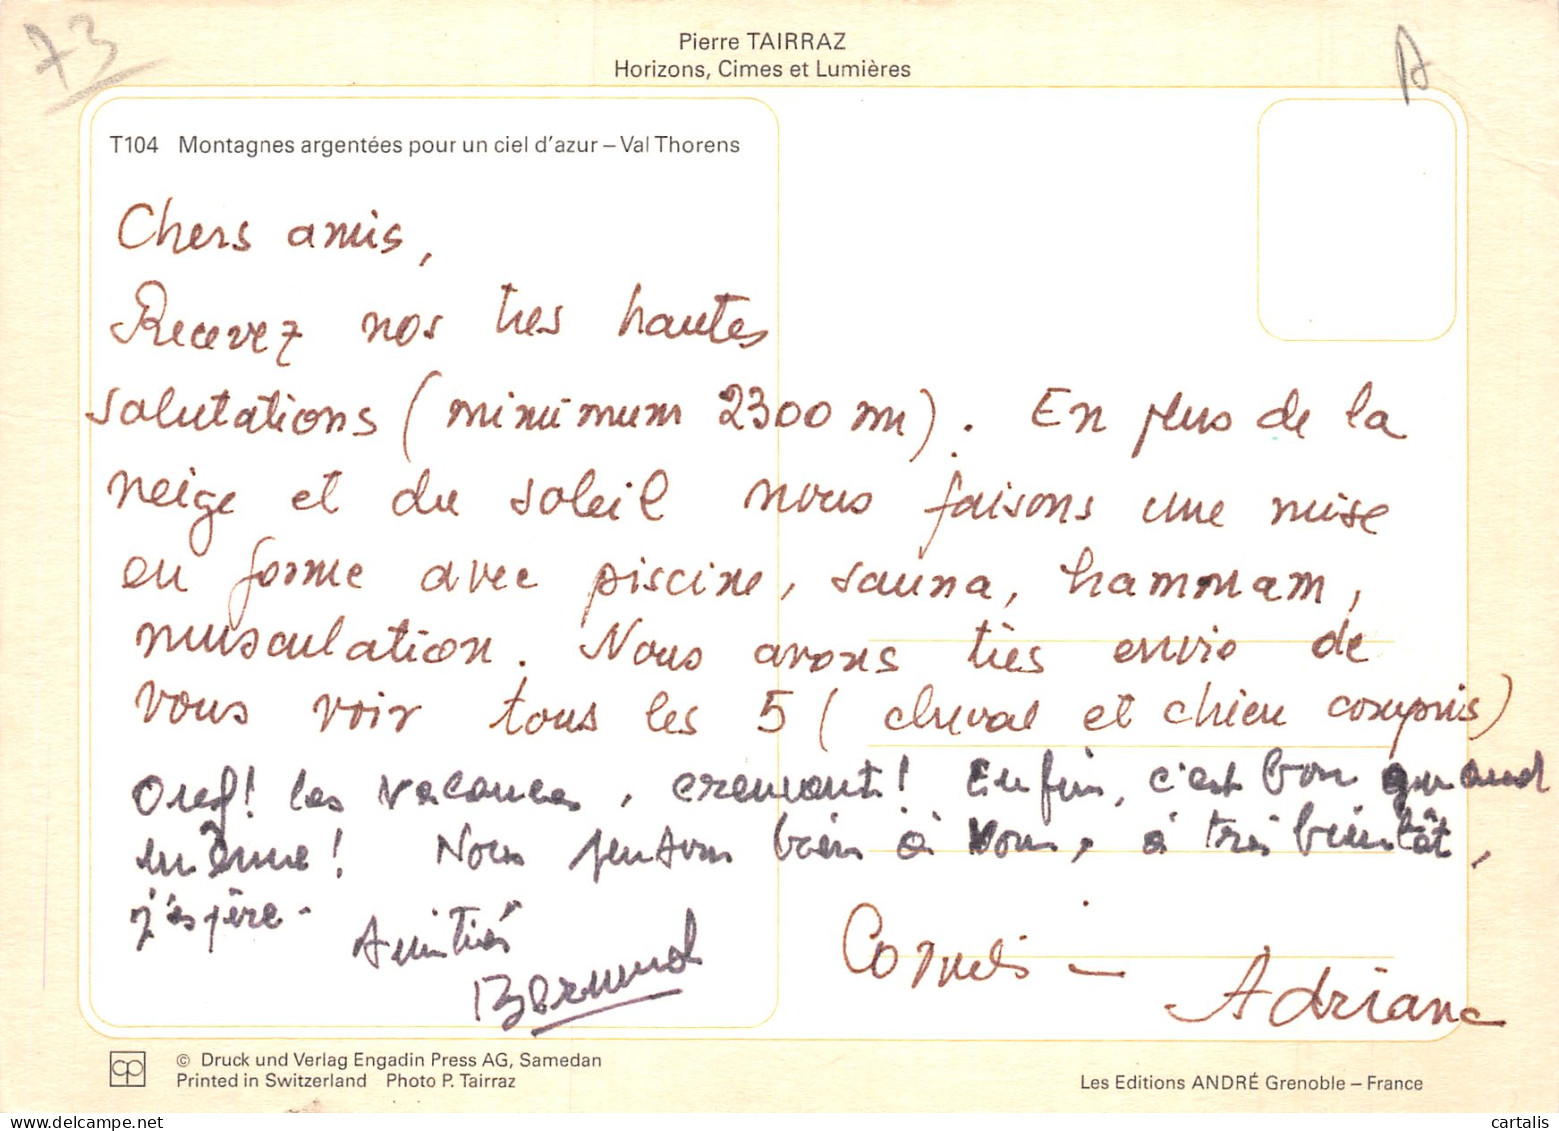 73
A
Pierre TAIRRAZ
Horizons, Cimes et Lumières
T104 Montagnes argentées pour un ciel d'azur – Val Thorens
Chers amis,
Recevez nos très hautes
salutations (minimum 2300 m). En plus de la
neige et du soleil nous faisons une mise
en forme avec piscine, sauna, hammam,
musculation. Nous avons très envie de
vous voir tous les 5 (cheval et chien compris)
Ouf! les vacances, ! Enfin, c'est bon quand
même! Nous pensons bien à vous, à très bientôt,
j'espère.
Amitiés
Cornelis – Adriana
© Druck und Verlag Engadin Press AG, Samedan
Printed in Switzerland Photo P. Tairraz
Les Editions ANDRÉ Grenoble – France
cp
cartalis